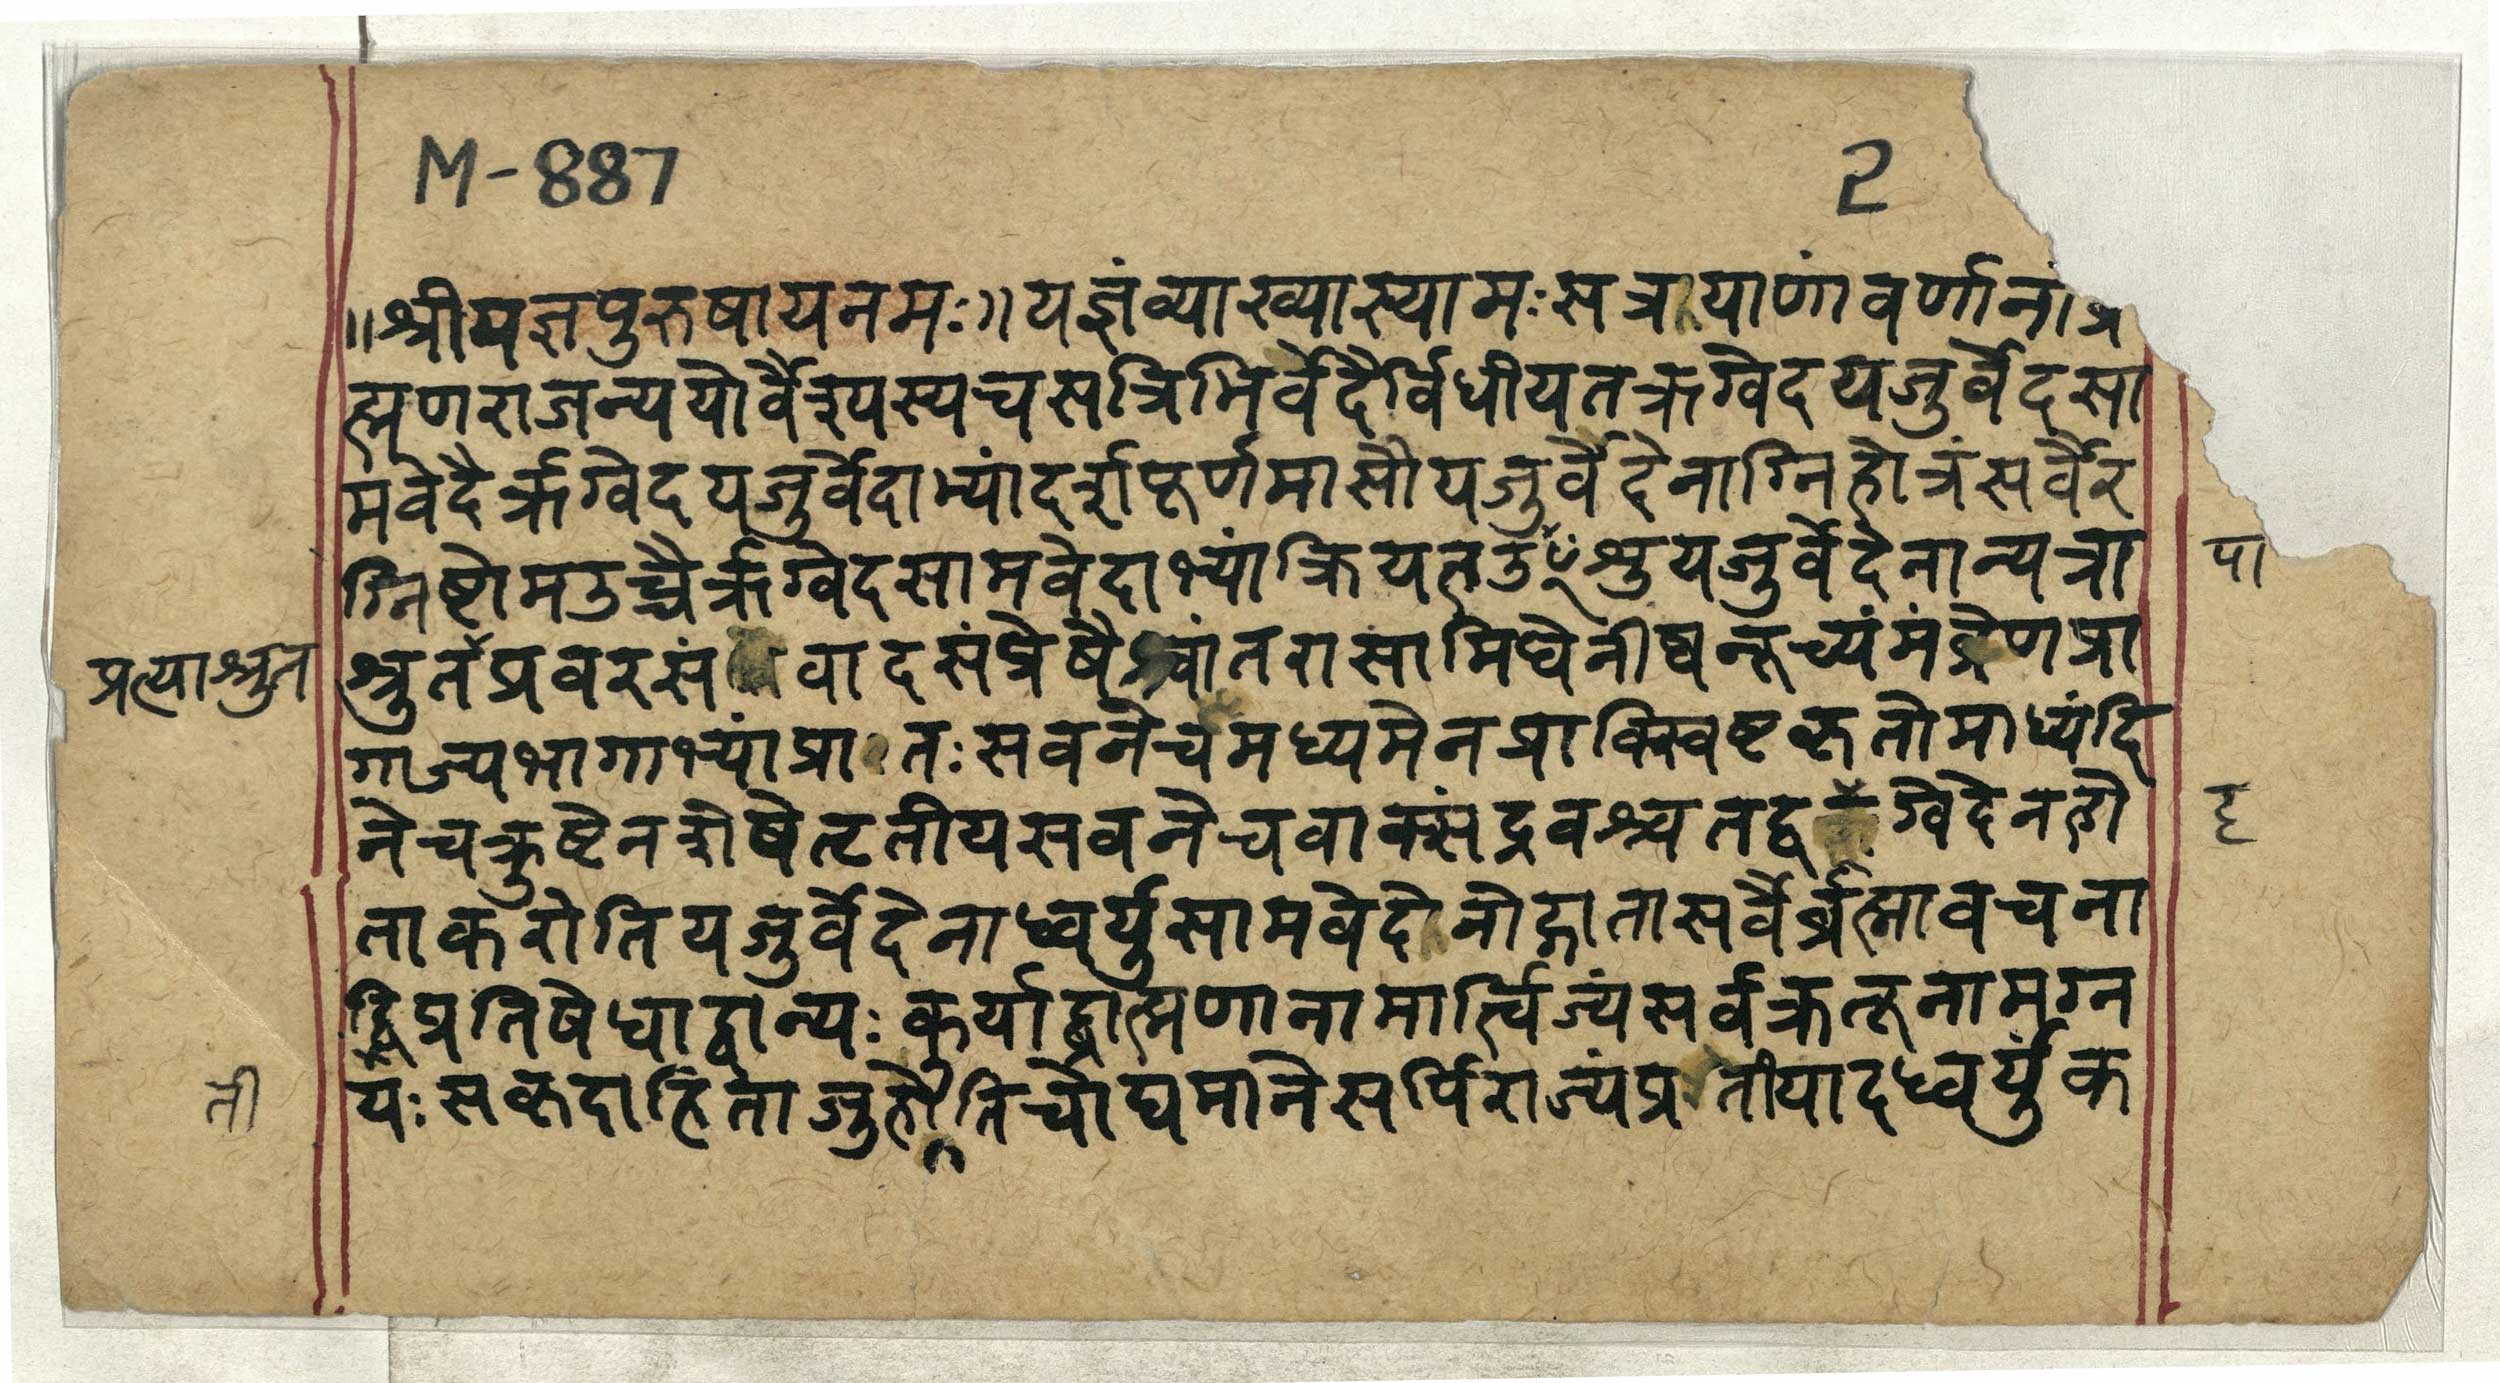 M-887 2
॥श्रीयज्ञपुरुषायनमः॥यज्ञंव्याख्यास्यामःसत्रयाणांवर्णानांब्रा
ह्मणराजन्ययोर्वैश्यस्यचसत्रिभिर्वेदैर्विधीयतऋग्वेदयजुर्वेदसा
मवेदैर्ऋग्वेदयजुर्वेदाभ्यांदर्शपूर्णमासौयजुर्वेदेनाग्निहोत्रंसर्वैर
ग्निष्टोमउच्चैर्ऋग्वेदसामवेदाभ्यांक्रियतउपाँशुयजुर्वेदेनान्यत्रा
पा
श्रुतप्रवरसंवादसंप्रैषैश्चांतरासामिधेनीष्वनूच्यंमंद्रेणप्रा
प्रत्याश्रुत
गाज्यभागाभ्यांप्रातःसवनेचमध्यमेनप्राक्स्विष्टकृतोमाध्यंदि
नेचक्रुष्टेनशेषेतृतीयसवनेचवाक्संद्रवश्चतद्वग्वेदेनहो
दृ
ताकरोतियजुर्वेदेनाध्वर्युसामवेदेनोद्गातासर्वैर्ब्रह्मावचना
द्विप्रतिषेधाद्वान्यःकुर्याद्ब्राह्मणानामार्त्विज्यंसर्वक्रतूनामग्न
यःसकृदाहिताजुहोतिचोद्यमानेसर्पिराज्यंप्रतीयादध्वर्युंक
ती